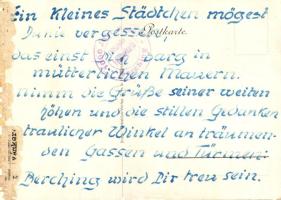 Ein kleines Städtchen mögest
Du nie vergessen Postkarte.
das einst Dich barg in
mütterlichen Mauern.
Nimm die Grüße seiner weiten
höhen und die stillen Gedanken
traulicher Winkel an träumen-
den Gassen und Türmen:
Berching wird Dir treu sein.